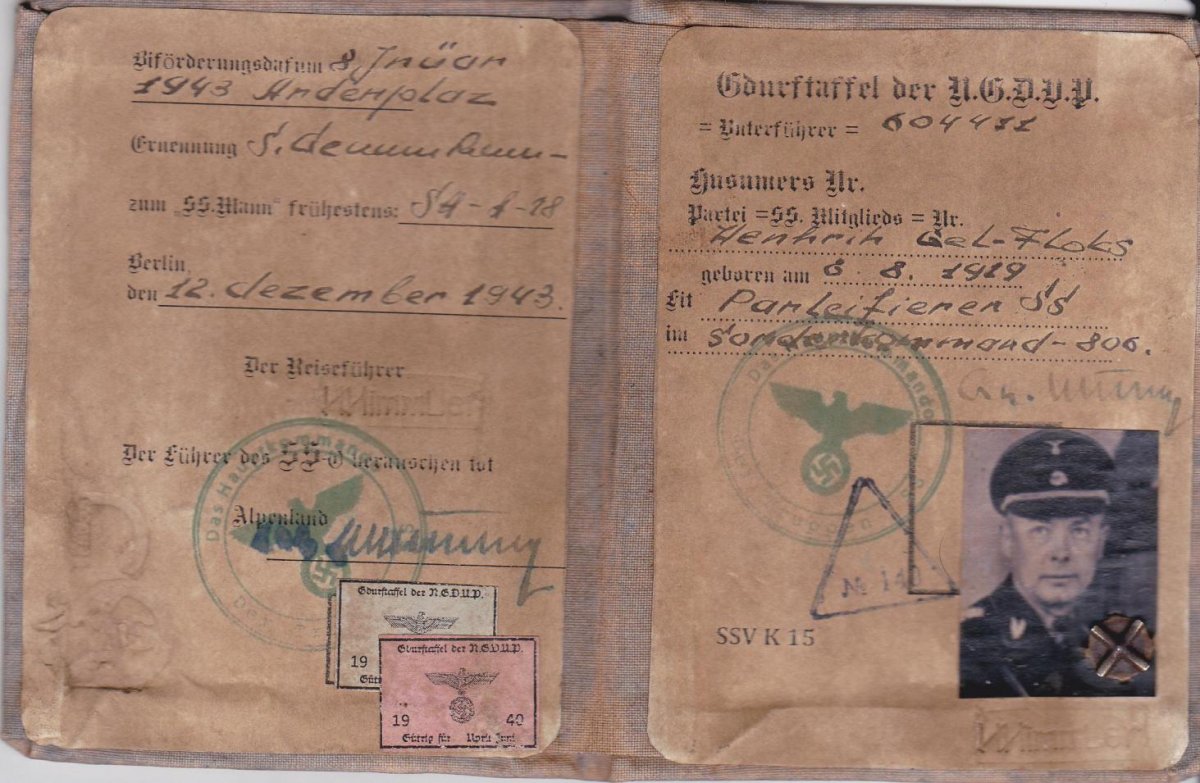 Biförderungsdatum 8 Jnüar
1943 Andenplaz
Ernennung S.
zum „SS.Mann" frühestens: S4-1-18
Berlin,
den 12. dezember 1943.
Der Reiseführer
Der Führer des SS
tot
Alpenland
Das
Gdurftaffel der N.G.D.V.P.
19
Gdurftaffel der N.G.D.V.P.
19 40
Gütrip für April Juni
Gdurftaffel der N.G.D.V.P.
= Vuterführer = 604411
Husumers Nr.
Partei =SS. Mitglieds = Nr.
Henhrik Gel-Floks
geboren am 6 8. 1919
Lit Parleifierer SS
im Sonderkommand-806.
Das
№ 14
SSV K 15